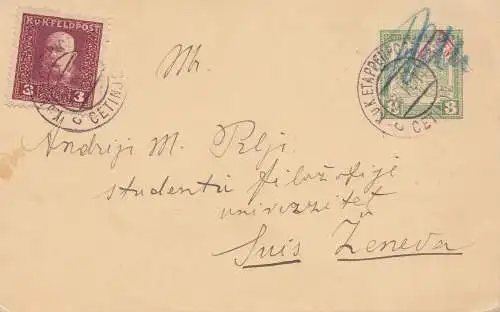 K.u.K. FELDPOST
3 3
CETINJE
K.u.K. ETAPPENPOSTAMT
CETINJE
3 3
Mr.
Andriji M. Prlji
studentu filozofije
univerzitet
Suis Ženeva